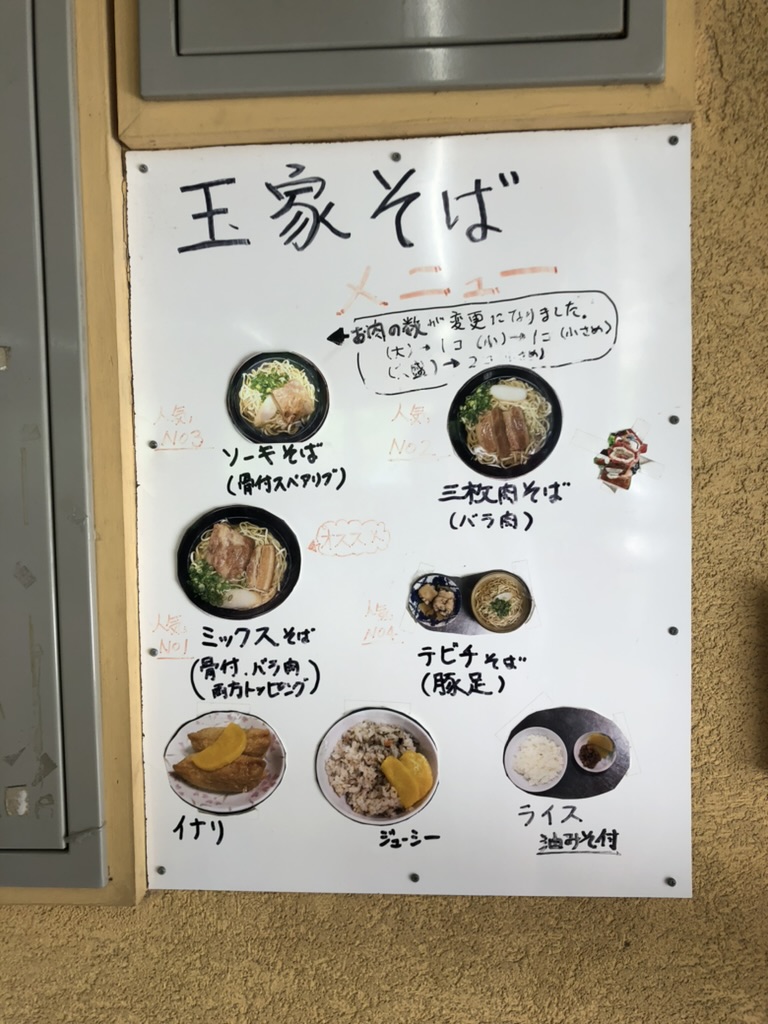 玉家そば
メニュー
お肉の数が変更になりました。
(大)→1コ (小)→1コ(小さめ)
盛)→2コ さめ)
人気
NO3
ソーキそば
(骨付スペアリブ)
人気
NO2
三枚肉そば
(バラ肉)
オススメ
人気
NO1
ミックスそば
(骨付.バラ肉
両方トッピング)
人気
NO4
テビチそば
(豚足)
イナリ
ジューシー
ライス
油みそ付